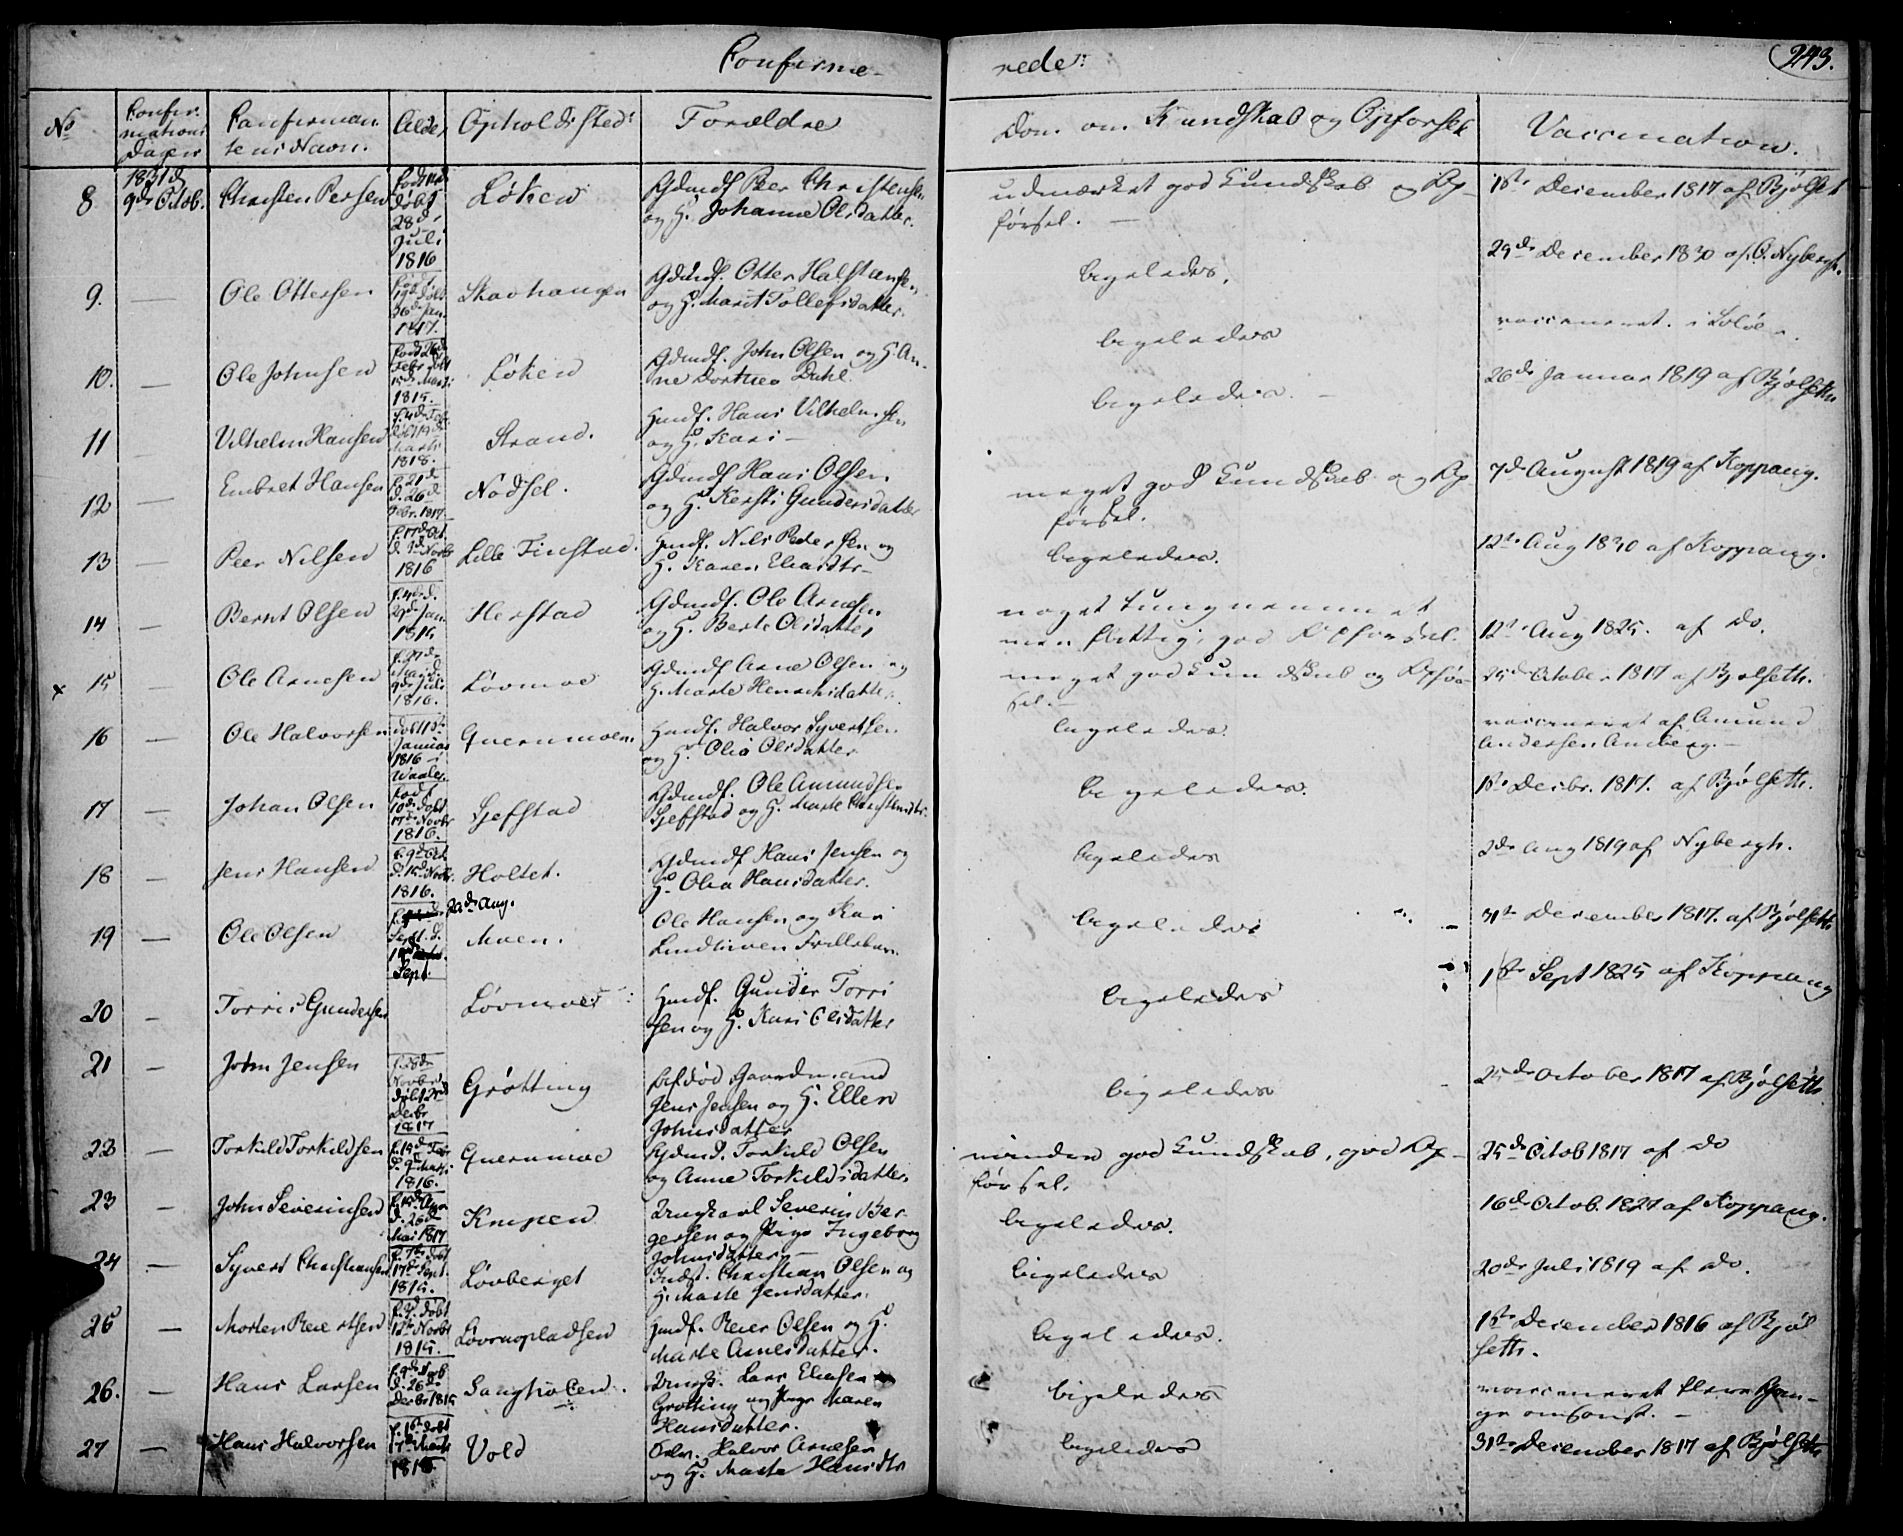 Confirme-
rede:
243.
No
Confir-
mations
Dagen
Confirman-
tens Navn.
Alder
Opholdssted:
Forældre
Dom om Kundskab og Opførsel
Vaccination.
8 1831 d 9de Octob. Christen Persen født døbt 28 d Juli 1816 Løken Gdmdf Peer Christensen og H. Johanne Olsdatter. udmærket god Kundskab og Op-førsel. — 18de December 1817 af Bjølseth
9. — Ole Ottersen 1817. Skavhaugen Gdmdf. Otter Halstensen og H. Marit Tollefsdatter. ligeledes. 29de December 1830 af O. Nybergh.
10. — Ole Johnsen 1815. Løken Gdmdf. John Olsen og H. An-ne Dorthea Dahl. ligeledes vaccineret i
11 — Vilhelm Hansen 1818. Strand. Hmdf. Hans Vilhelmsen og H. Kari — ligeledes. — 26de Januar 1819 af Bjølseth
12 — Embret Hansen f. 21de d. 26de Febr. 1817. Nodsel. Gdmdf Hans Olsen og H. Kersti Gundersdatter meget god Kundskab og Op-førsel. 7de August 1819 af Koppang.
13 — Peer Nilsen f. 17de Oct. d. Novb 1816 Lille Finstad. Hmdf. Nils Pedersen og H. Karen Eliasdtr — ligeledes. 12te Aug 1830 af Koppang.
14 — Bernt Olsen 29de Jan. 1815 Herstad Gdmdf. Ole Arnesen og H. Berte Olsdatter noget tungnemmet men flittig, god Opførsel. 12te Aug 1825. af Do.
x 15 — Ole Arnesen 1816. Løvmoe Gdmdf Arne Olsen og H. Marte Henrichsdatter. meget god Kundskab og Opfør-sel. — 25de October 1817 af Bjølseth.
16 — Ole Halvorsen Januar 1816 i Waaler. Quernmoen. Hmdf. Halvor Syvertsen og H. Olia Olsdatter ligeledes. vaccineret af Amund Andersen Amberg. —
17 — Johan Olsen født 10de døbt 17de Novbr 1816. Sjefstad Gdmdf. Ole Amundsen Sjefstad og H. Marte Christensdtr. ligeledes. 18de Decbr. 1817. af Bjølseth.
18 — Jens Hansen f. 9de Oct. d. 15de Novbr. 1816. Holtet. Gdmdf Hans Jensen og H. Olia Hansdatter. ligeledes 2de Aug 1819 af Nybergh.
19 — Ole Olsen 22de Aug. Sept. Moen. Ole Hansen og Kari ligeledes 31te December 1817. af Bjølseth
20 — Torris Gundersen Løvmoe Hmdf. Gunder Torri-sen og H. Kari Olsdatter ligeledes 1ste Sept 1825 af Koppang
21 — John Jensen Novbr døbt Decbr 1817 Grøtting Afdød Gaardmand Jens Jensen og H. Ellen Johnsdatter ligeledes 25de October 1817 af Bjølseth
22 — Torkild Torkildsen 1816. Quernmoe Gdmd. Torkild Olsen og Anne Torkildsdatter. minder god Kundskab, god Op-førsel. 25de Octob 1817 af Do
23 — John Severinsen d. 26de Mai 1817 Knipen Ungkarl Severin Ber-gersen og Pige Ingeborg Johnsdatter — ligeledes. 16de Octob. 1827 af Koppang.
24 — Syvert Christiansen f. 7de døbt 17de Sept. 1815. Løvberget Indst. Christian Olsen og H. Marte Jensdatter. ligeledes 20de Juli 1819 af Do.
25 — Morten Reiertsen døbt 12te Novbr 1815. Løvenopladsen Hmdf. Reier Olsen og H. Marte Arnesdatter. ligeledes. 18de December 1816 af Bjøl-seth.
26. — Hans Larsen d. 26de Decbr 1815 Sangholen. Ungk. Lars Eliasen Grøtting og Pige Maren Hansdatter. ligeledes vaccineret flere Gan-ge omsonst. —
27 — Hans Halvorsen døbt 17de Marts 1818 Vold Halvor Arnesen og H. Marte Hansdtr ligeledes 31te December 1817 af Bjølseth